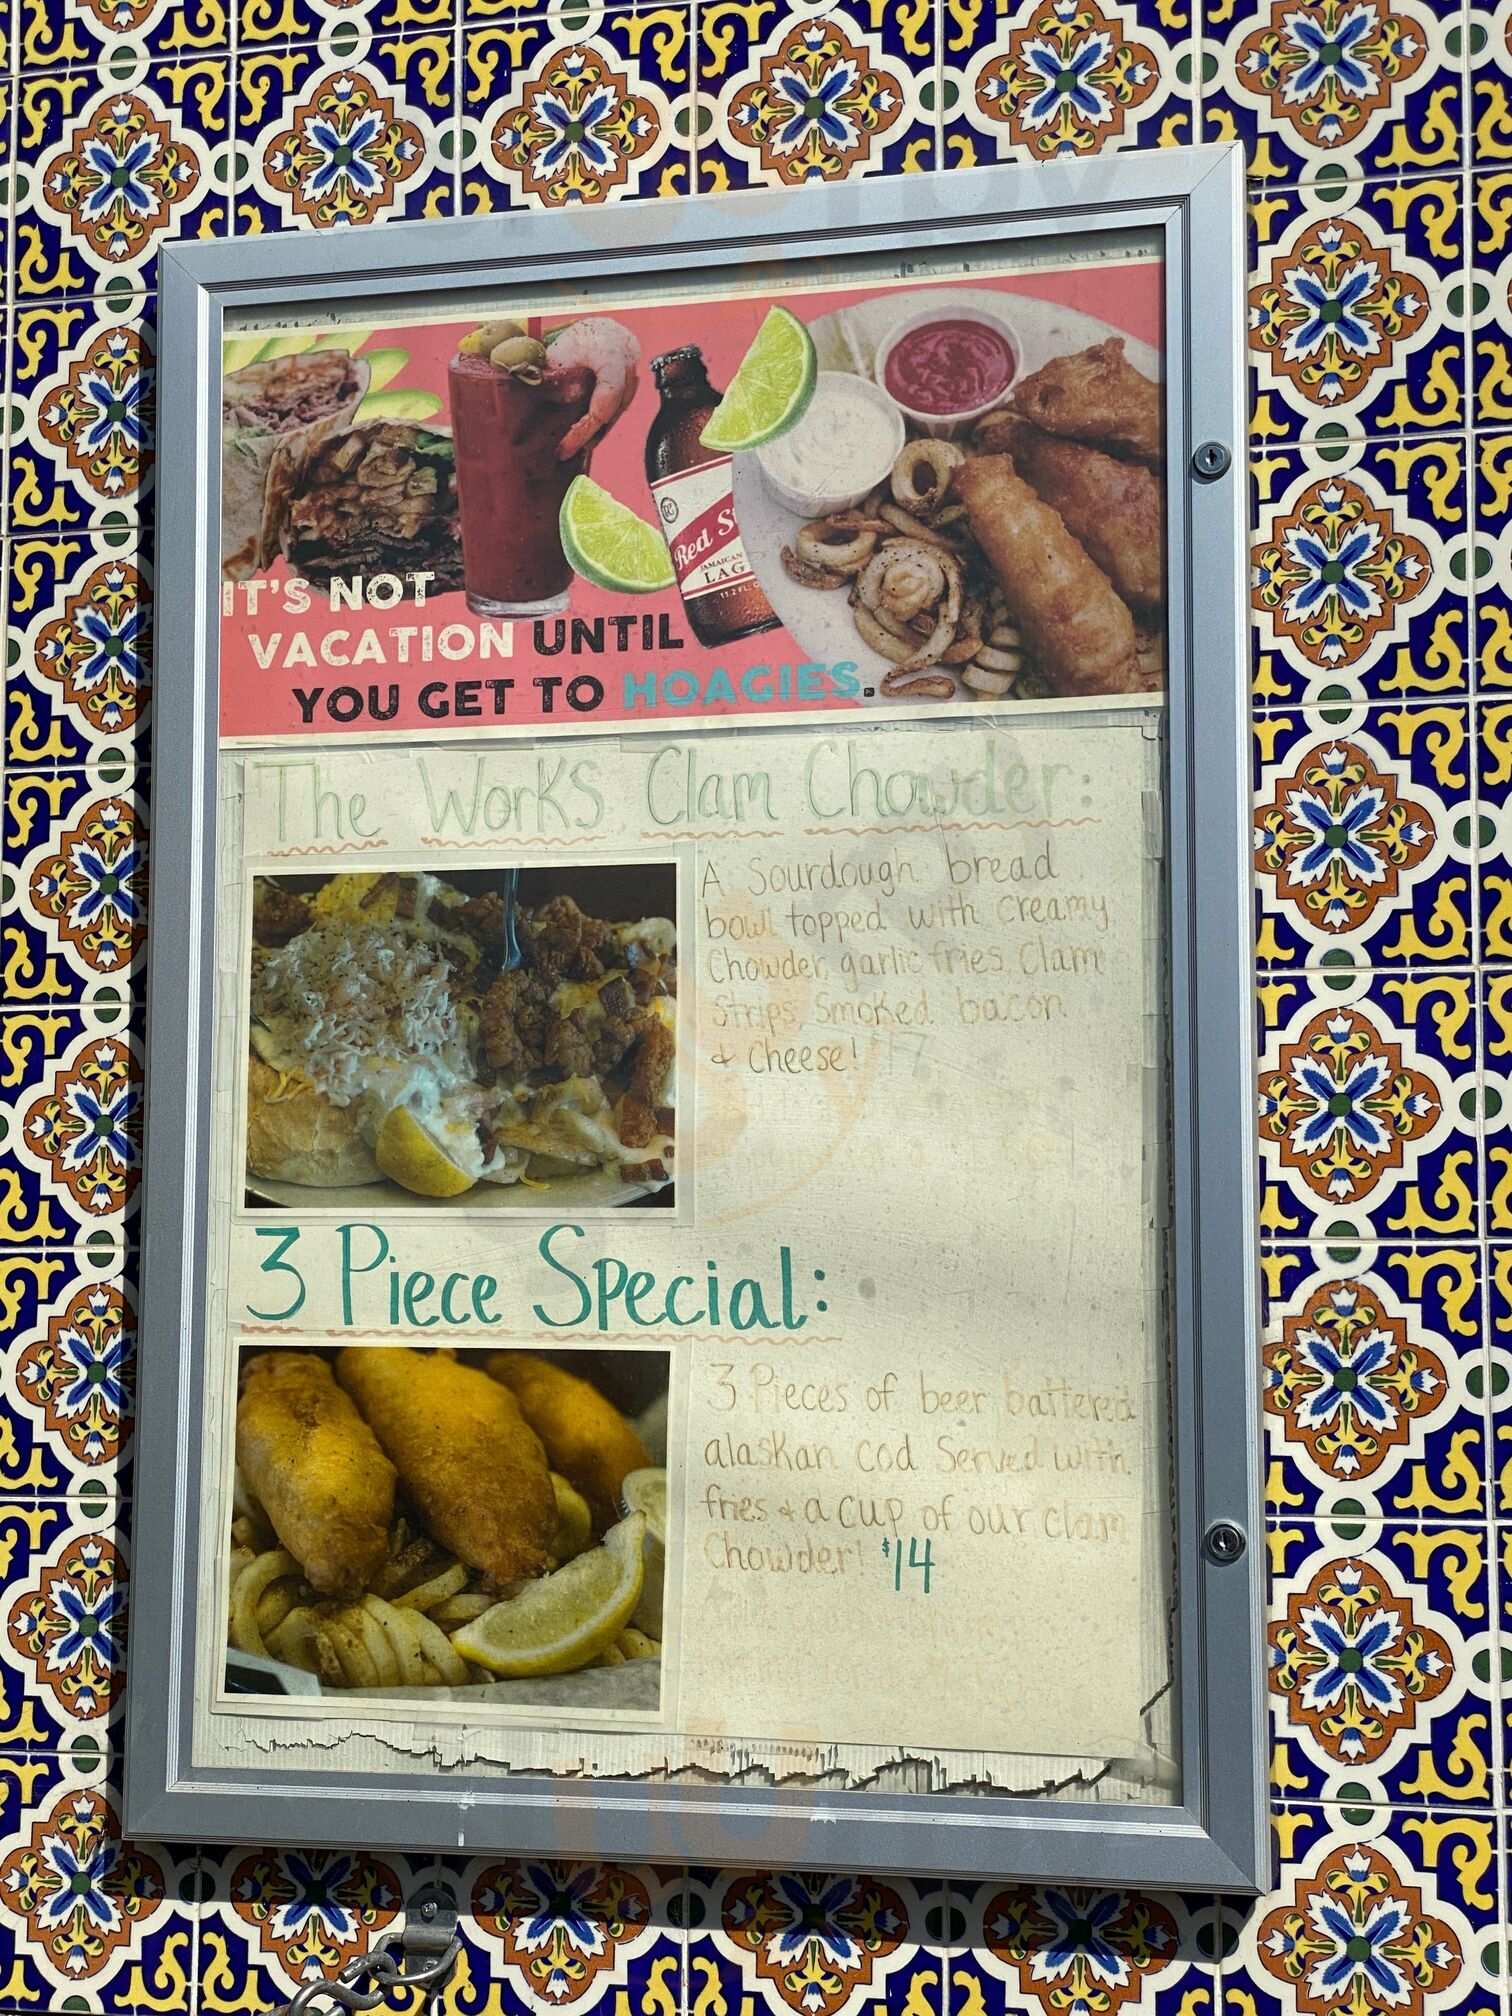 IT'S NOT
VACATION UNTIL
YOU GET TO HOAGIES.
Red
JAMAICAN
LAG
11.2 FL
The Works Clam Chowder:
A Sourdough bread
bowl topped with creamy
Chowder, garlic fries, Clam
Strips, Smoked bacon
& Cheese! 17
3 Piece Special:
3 Pieces of beer battered
alaskan cod Served with
fries & a cup of our clam
Chowder! $14